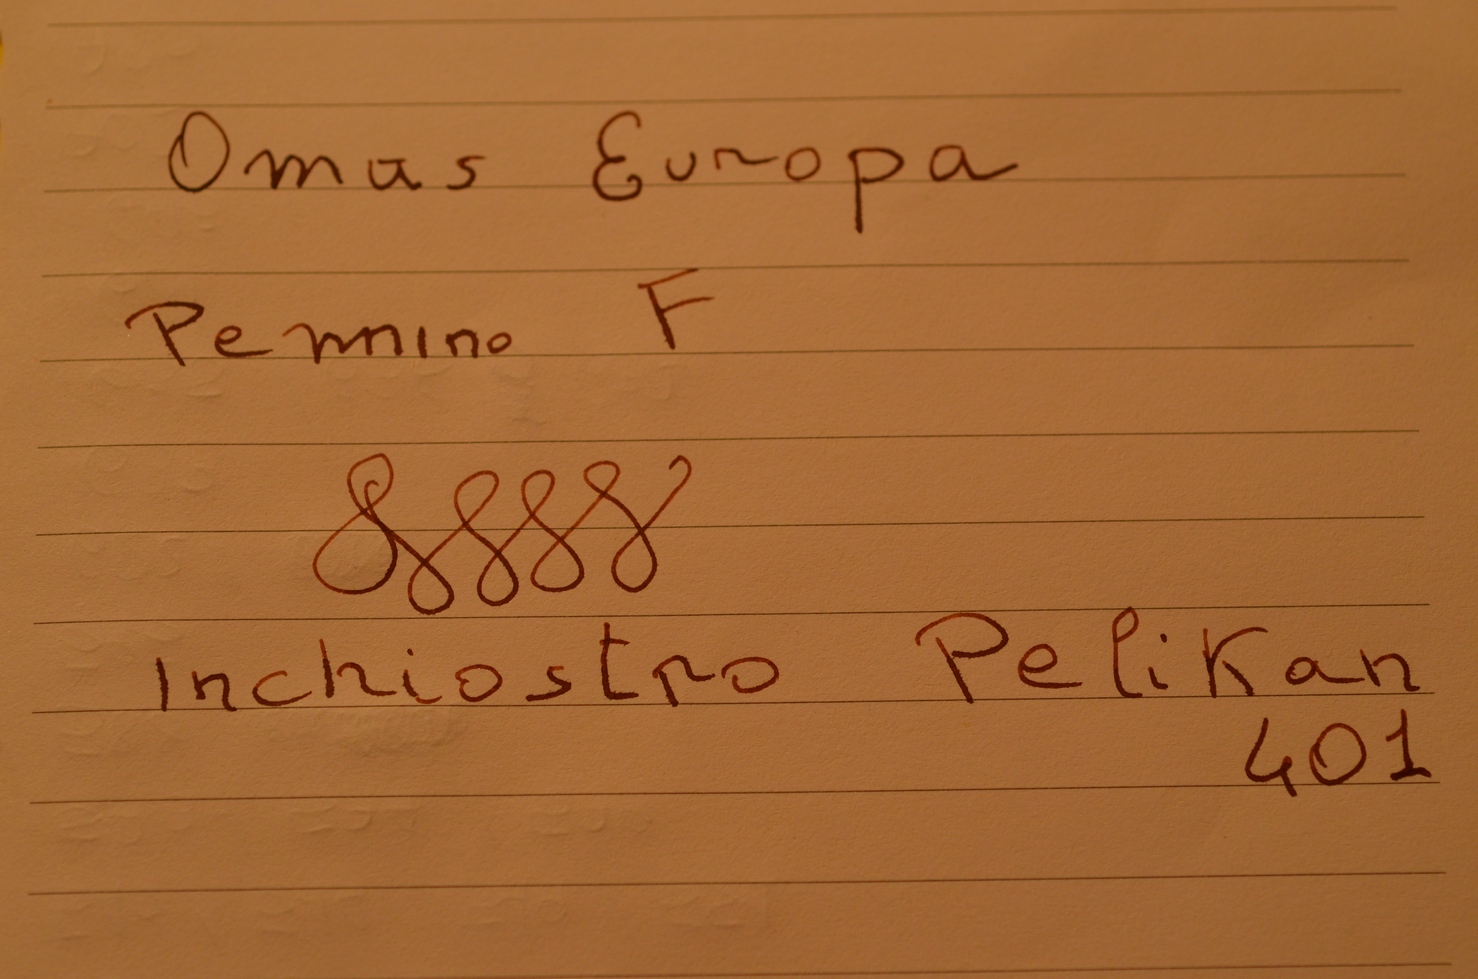 Omas Europa
Pennino F
Inchiostro Pelikan
401